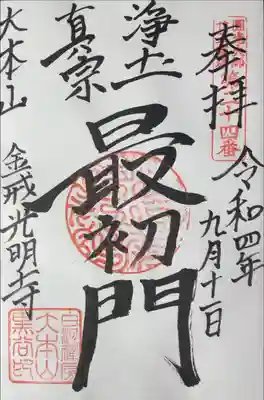 奉拝
令和四年
九月十一日
浄土
真宗
最初
門
大本山
金戒光明寺
大本山